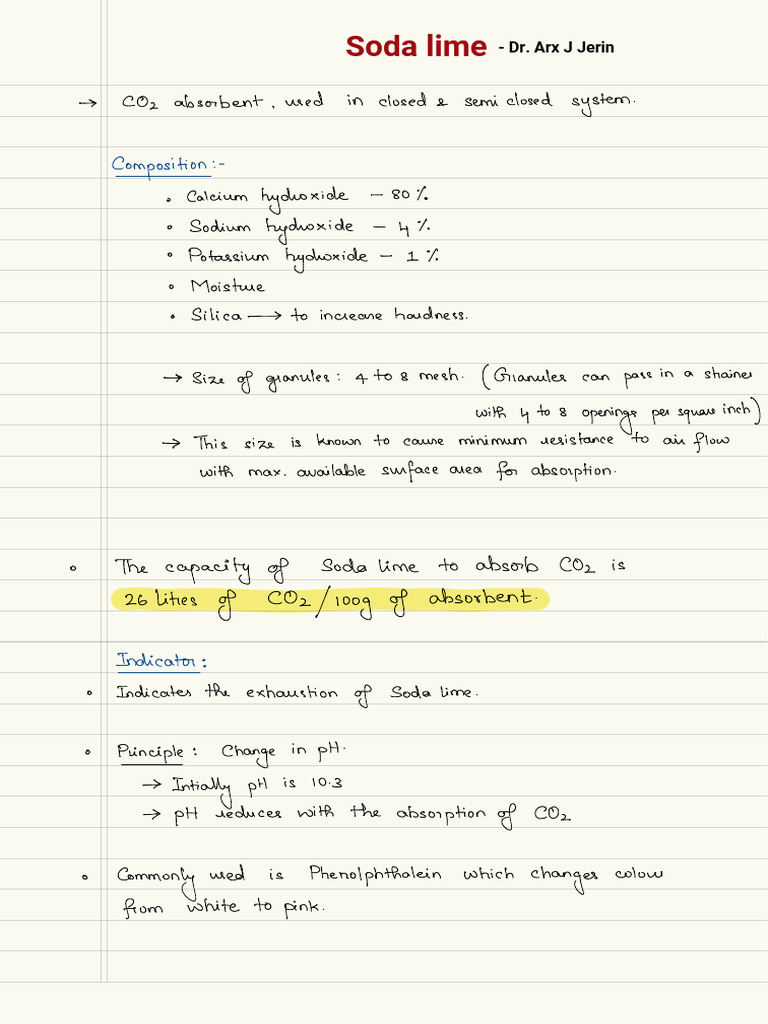 Soda lime - Dr. Arx J Jerin
→ CO2 absorbent, used in closed & semi closed system.
Composition:-
• Calcium hydroxide – 80%
• Sodium hydroxide – 4%
• Potassium hydroxide – 1%
• Moisture
• Silica → to increase hardness.
→ Size of granules: 4 to 8 mesh. (Granules can pass in a strainer
with 4 to 8 openings per square inch)
→ This size is known to cause minimum resistance to air flow
with max. available surface area for absorption.
• The capacity of Soda lime to absorb CO2 is
26 litres of CO2/100g of absorbent.
Indicator:
• Indicates the exhaustion of Soda lime.
• Principle: Change in pH.
→ Intially pH is 10.3
→ pH reduces with the absorption of CO2
• Commonly used is Phenolphthalein which changes colour
from white to pink.